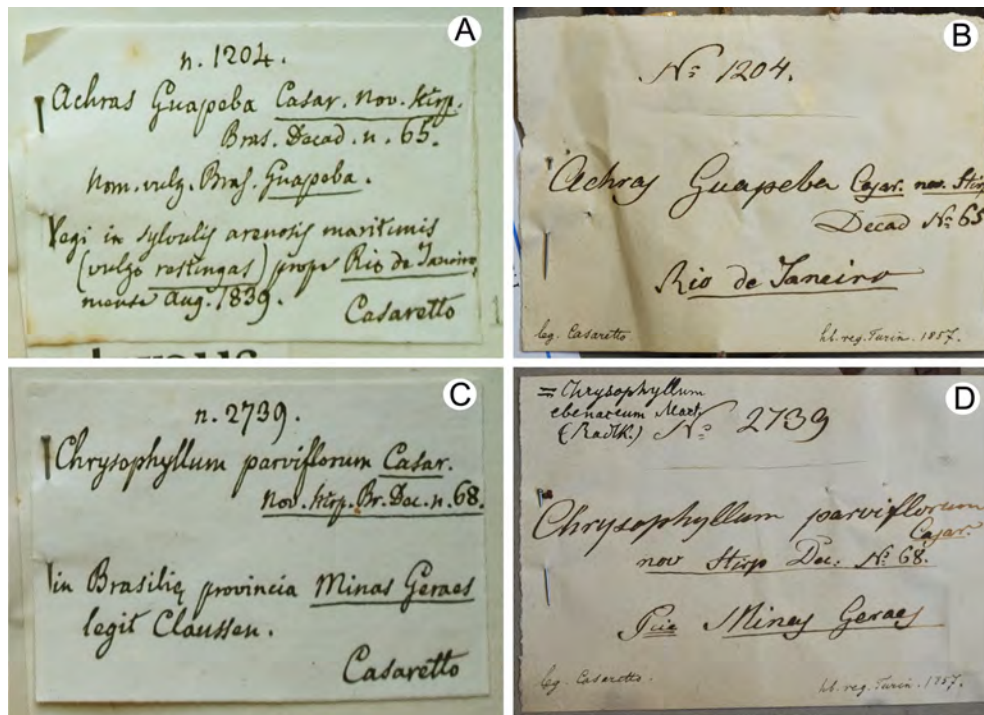 A
n. 1204.
Achras Guapeba Casar. Nov. Stirp.
Bras. Decad. n. 65.
Nom. vulg. Bras. Guapeba.
Legi in sylvulis arenosis maritimis
(vulgo restingas) prope Rio de Janeiro,
mense Aug. 1839.
Casaretto
B
Nº 1204.
Achras Guapeba Casar. nov. Stirp
Decad Nº 65
Rio de Janeiro
leg. Casaretto.
hb. reg. Turin. 1857.
C
n. 2739.
Chrysophyllum parviflorum Casar.
Nov. Stirp. Br. Dec. n. 68.
in Brasilię provincia Minas Geraes
legit Claussen.
Casaretto
D
= Chrysophyllum
ebenaceum Mart
(Radlk.) Nº 2739
Chrysophyllum parviflorum
Casar.
nov Stirp Dec. Nº 68.
Pcie Minas Geraes
leg. Casaretto.
hb. reg. Turin. 1857.